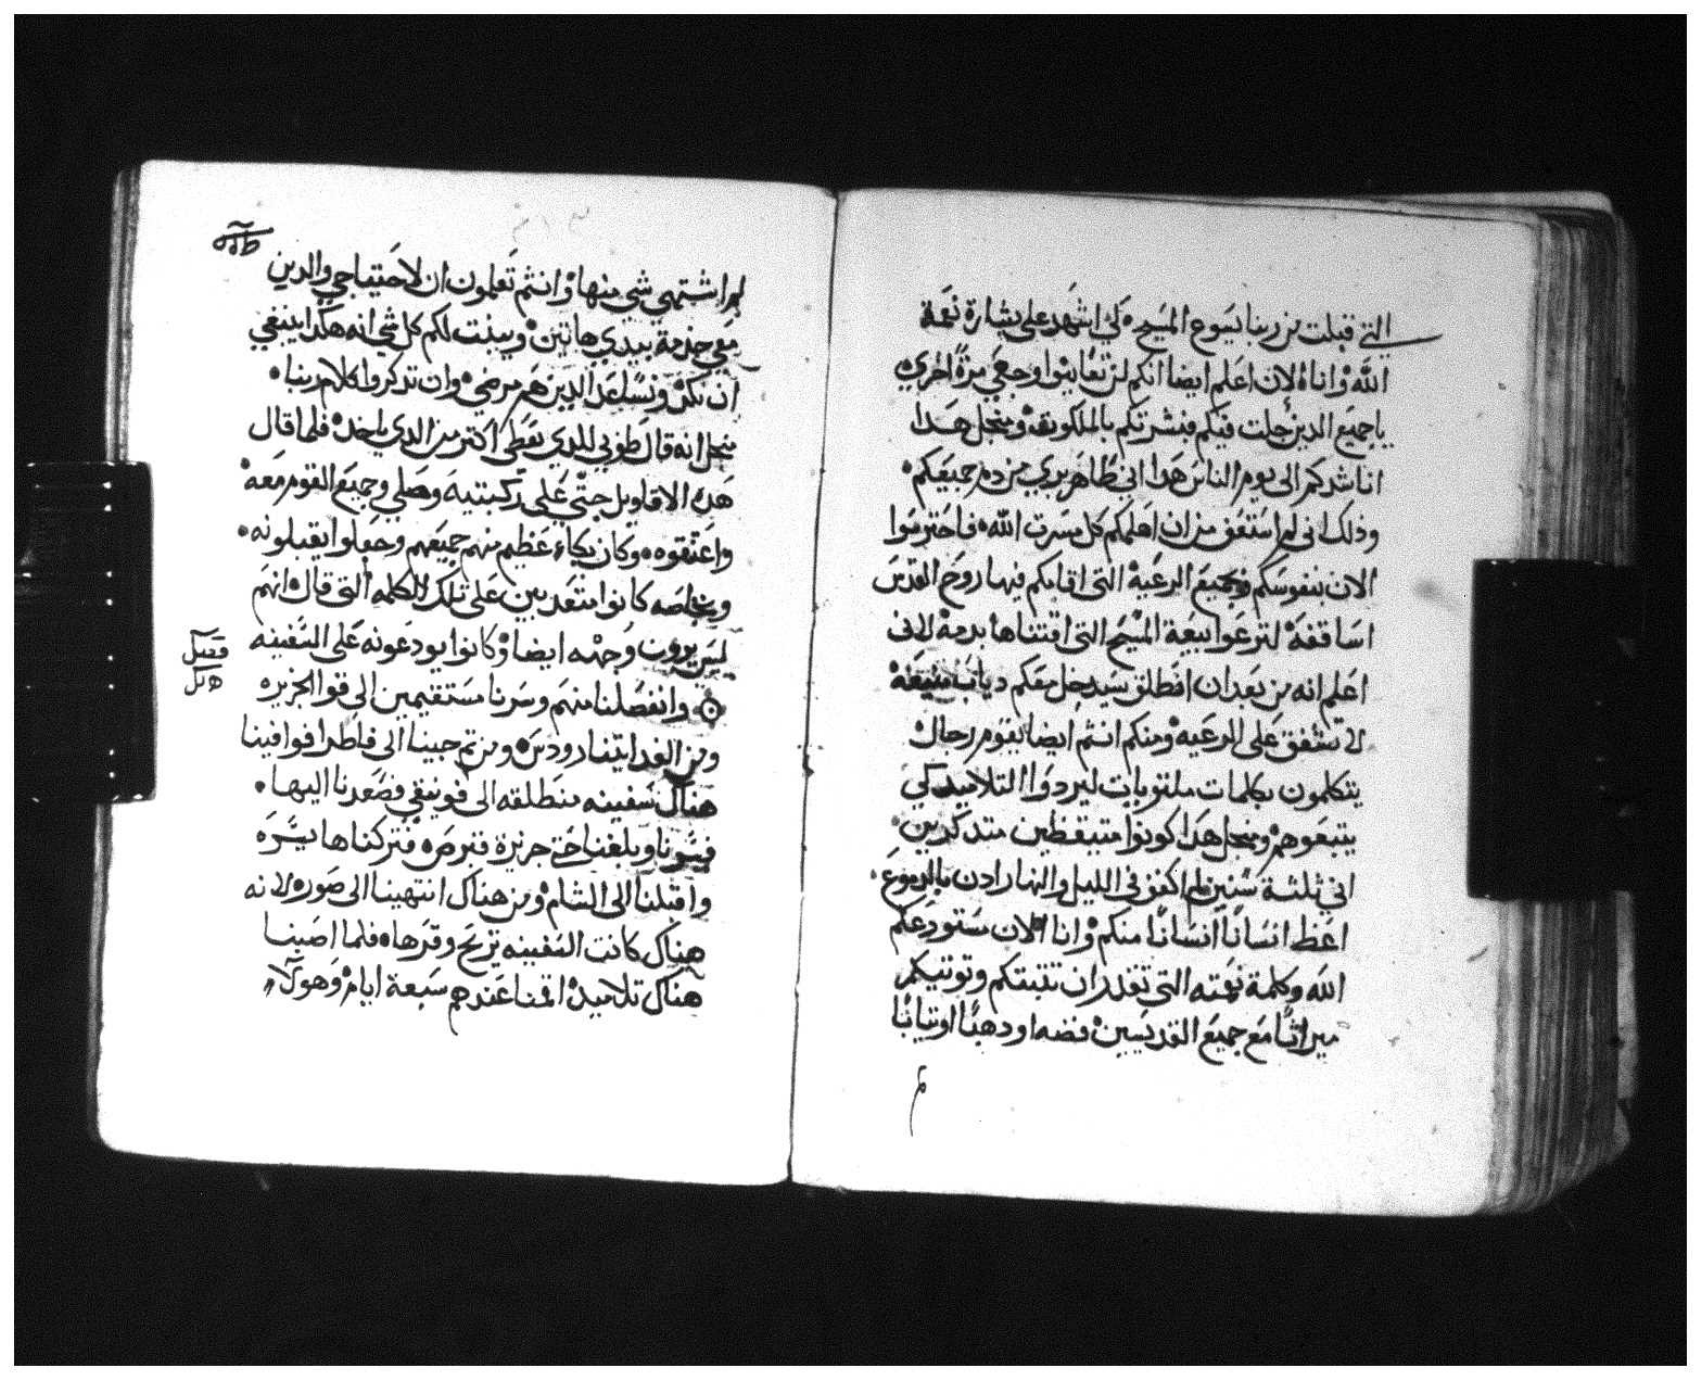 التي قبلت من ربنا يسوع المسيح لكي اشهد على بشارة نعمة
الله وانا الان اعلم ايضا انكم لن تعاينوا وجهي مرة اخري
يا جميع الدين جلت فيكم فبشرتكم بالملكوت ومنجل هدا
اناشدكم الى يوم الناس هدا اني طاهر بري من دم جميعكم
وذلك اني لم استعف من ان اعلمكم كل مسرت الله فاحترسوا
الان بنفوسكم وبجميع الرعية التي اقامكم فيها روح القدس
اساقفة لترعوا بيعة المسيح التي اقتناها بدمه لاني
اعلم انه من بعد ان انطلق سيدخل معكم دياب منيعة
لا تشفق على الرعيه ومنكم انتم ايضا يقوم رجال
يتكلمون بكلمات ملتويات ليردوا التلاميد كي
يتبعوهم ومنجل هدا كونوا متيقظين متدكرين
اني ثلثة سنين لم اكفف في الليل والنهار ادن بالدموع
اعظ انسانًا انسانًا منكم وانا الان مستودعكم
الله وكلمة نعمته التي تقدر ان تثبتكم وتوتيكم
ميراثًا مع جميع القديسين فضه او دهبًا او تيابًا
لم اشتهي شي منها وانتم تعلمون ان لاحتياجي والدين
معي خدمة بيدي هاتين وبينت لكم كل شي انه هكدا ينبغي
ان نكد ونساعد الدين هم مرضي وان تدكروا كلام ربنا
منجل انه قال طوبي للدي يعطي اكتر من الدي ياخد فلما قال
هده الاقاويل جتي على ركبتيه وصلي وجميع القوم معه
واعتنقوه وكان بكاء عظيم منهم جميعهم وجعلوا يقبلونه
وبخاصه كانوا متعدبين على تلك الكلمه التي قال انهم
ليس يرون وجهه ايضا وكانوا يودعونه على السفينه
وانفصلنا منهم وسرنا مستقيمين الى قوا الجزيره
ومن الغد اتينا رودس ومن تم جينا الى فاطرا فوافينا
هناك سفينه منطلقه الى فونيقي فصعدنا اليها
فسرنا وبلغنا حتي جزيرة قبرص فتركناها يسره
واقبلنا الى الشام ومن هناك انتهينا الى صور لانه
هناك كانت السفينه تريح وقرها فلما اصبنا
هناك تلاميد اقمنا عندهم سبعة ايام وهولا